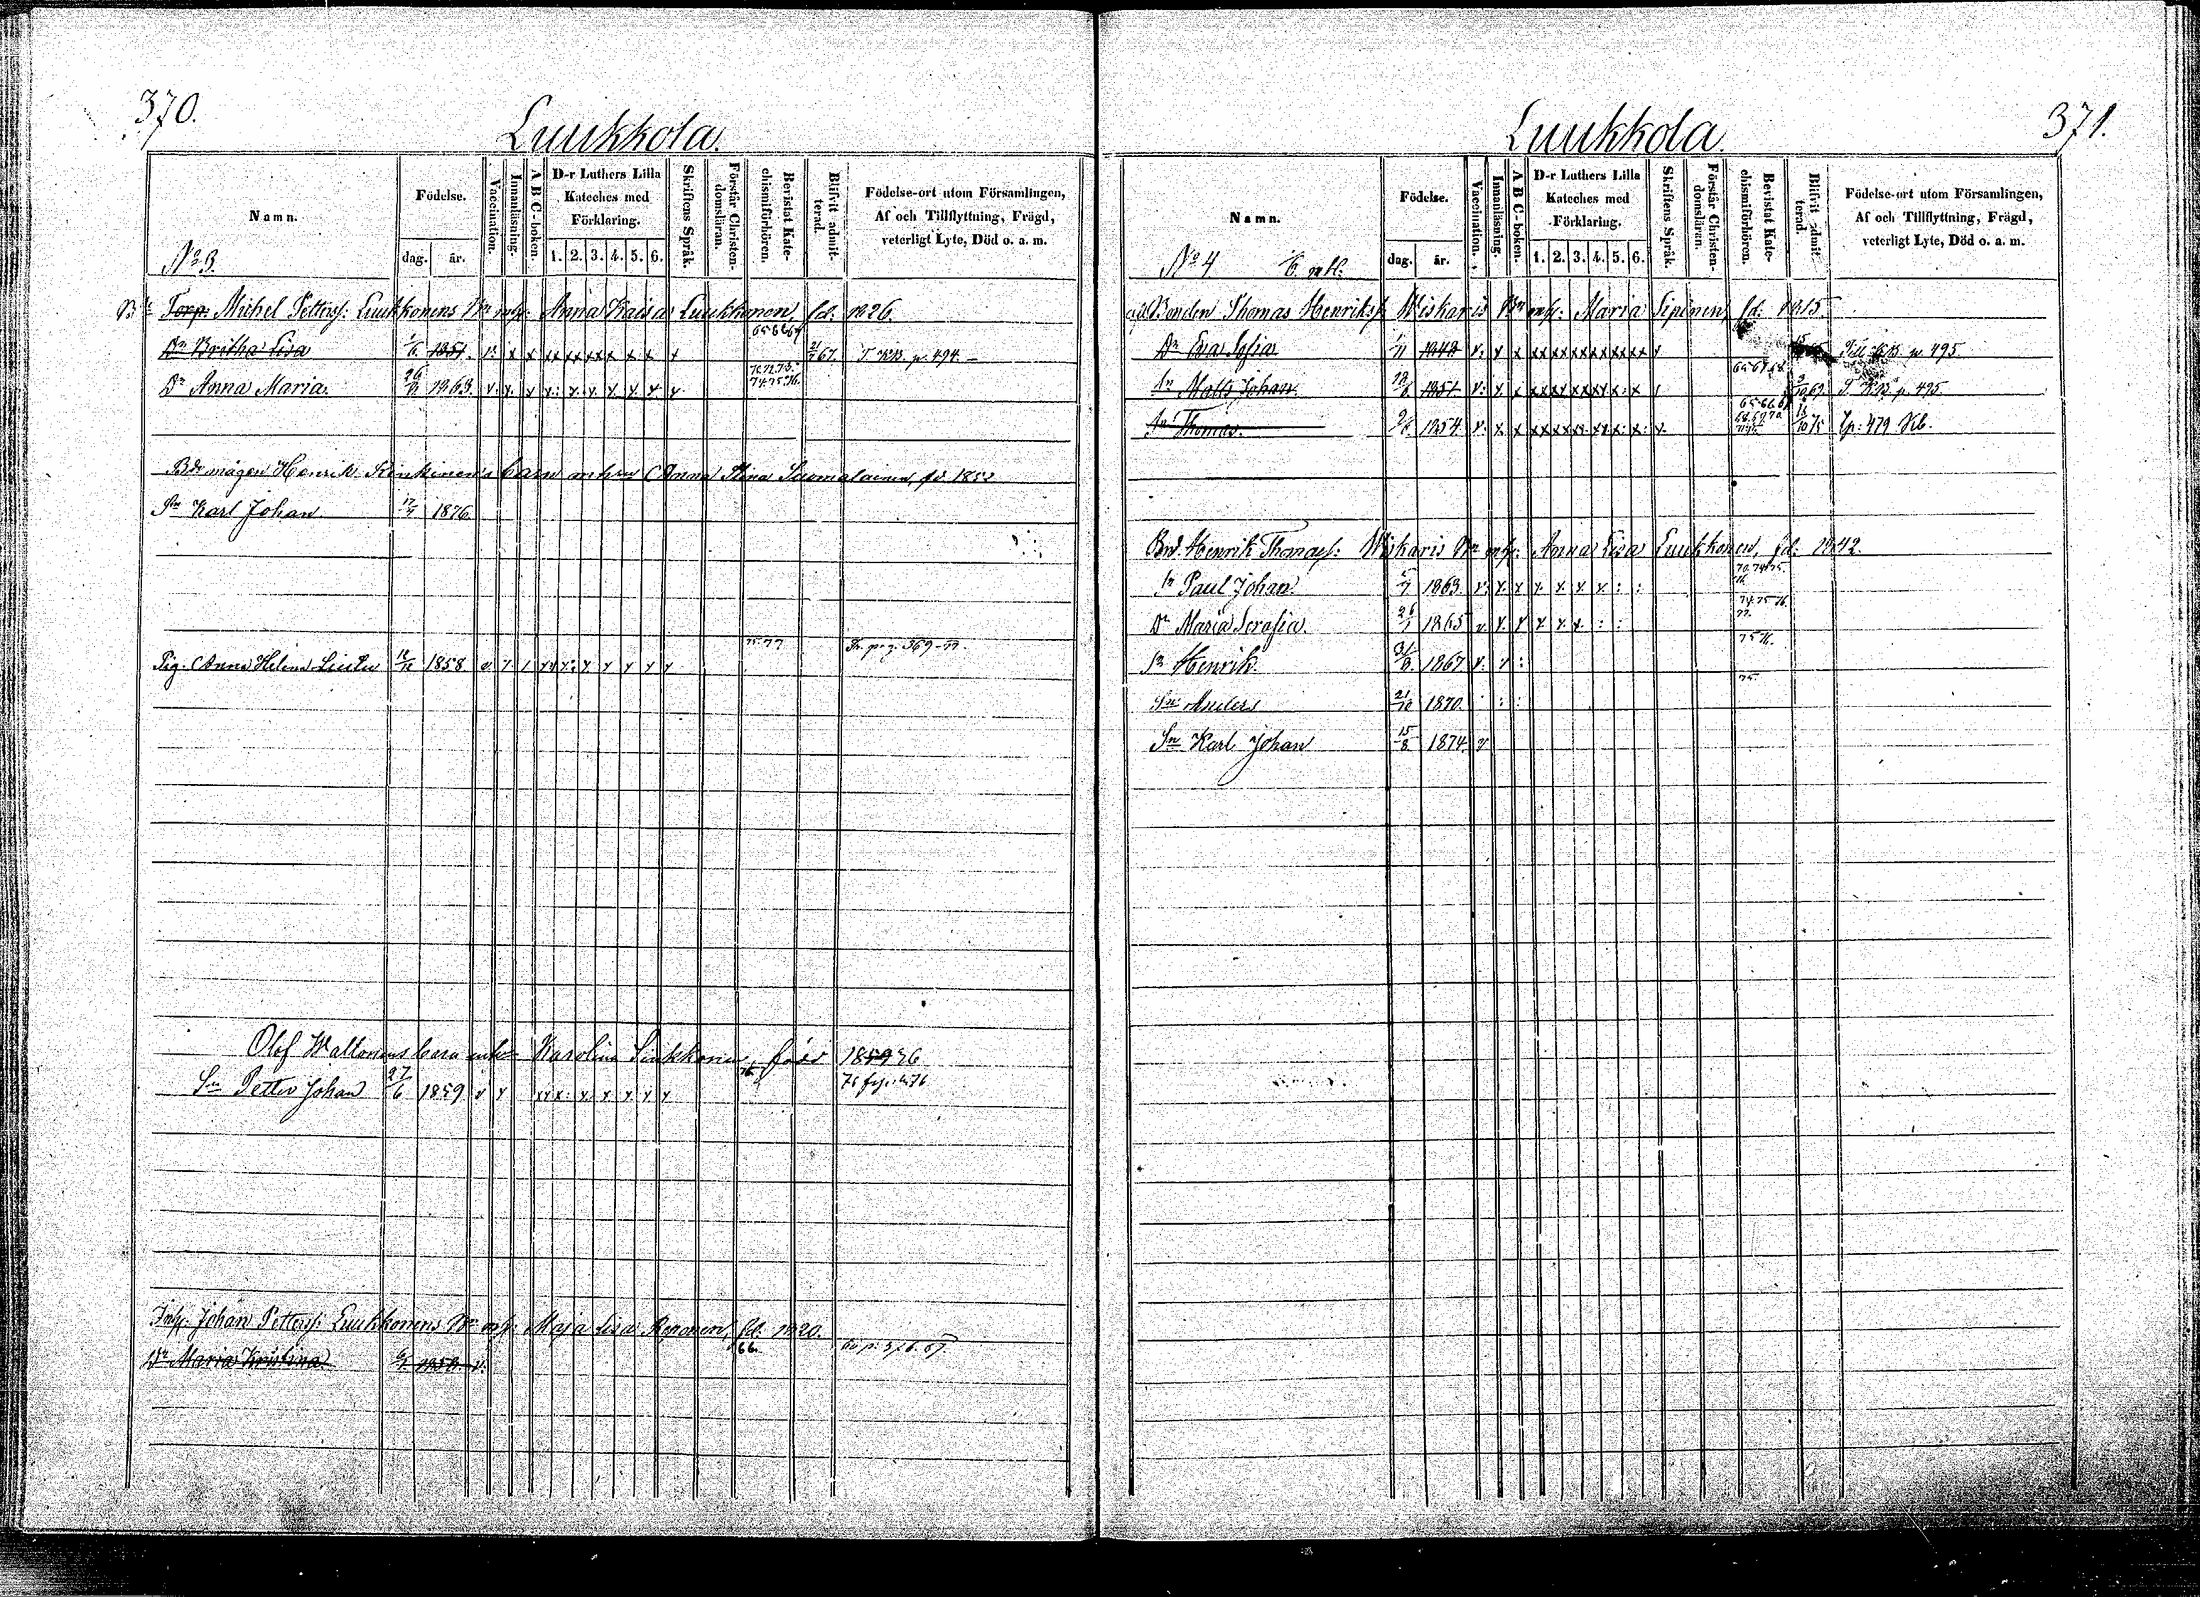 370.
Luukkola.
Namn.
Födelse.
dag. år.
Vaccination.
Innanläsning.
A B C-boken.
D-r Luthers Lilla Kateches med Förklaring.
1. 2. 3. 4. 5. 6.
Skriftens Språk.
Förstår Christendomsläran.
Bevistat Katechismiförhören.
Blifvit admitterad.
Födelse-ort utom Församlingen,
Af och Tillflyttning, Frägd,
veterligt Lyte, Död o. a. m.
No 3.
Torp: Michel Petterss: Luukkonens Bn m/h: Anna Kaisa Luukkonen, fd: 1826.
Dr Britha Lisa 1/6. 1851. v: x x x x x x x x x x x 65.66.67 21/7 67. T. KB. p. 494.
Dr Anna Maria. 26/9. 1863. v. x. x x: x. x. x. x. x x 70.72.73. 74.75.76.
Bde mågen Henrik Kinkunen's barn m hru Anna Stina Suomalainen, fd 1853
Sn Karl Johan 17/7 1876.
Pig. Anna Helena 12/12 1858 v. x 1 x x x: x x x x x x 75.77 Fr. pag. 369-77
Olof Waltonens barn m h: Karolina Luukkonen, född 185936
Sn Petter Johan 27/6 1859 v x x x x: x. x x. x x 76 75
Inh: Johan Petterss: Luukkonens Bn m/h: Maja Lisa Reponen, fd: 1820.
Dr Maria Kristina 1858. v. 66. 67.
371.
Luukkola.
Namn.
Födelse.
dag. år.
Vaccination.
Innanläsning.
A B C-boken.
D-r Luthers Lilla Kateches med Förklaring.
1. 2. 3. 4. 5. 6.
Skriftens Språk.
Förstår Christendomsläran.
Bevistat Katechismiförhören.
Blifvit admitterad.
Födelse-ort utom Församlingen,
Af och Tillflyttning, Frägd,
veterligt Lyte, Död o. a. m.
No 4
Bonden Thomas Henrikss: Wiskaris Bn m/h: Maria Sipinen, fd: 1815.
Dr Eva Sofia 1/11 1848 v: x x x x x x x x x x x x Till KB p. 495.
Sn Matts Johan. 12/6. 1851. v: x. x x x x x x x x: x 1 65.67.68. 69. T. KB. p. 495.
Sn Thomas. 9/6. 1854. v: x x x x x x x. x x x: x: x. 65.66.67 68.69.70. 75 p: 479 Kb.
Bnd. Henrik Thomass: Wiskaris Bn m/h: Anna Lisa Luukkonen, fd: 1842.
Sn Paul Johan. 5/7 1863. v: x. x x. x. x x. : : 70.74.75. 76.
Dr Maria Serafia. 26/1 1865 v. x. x x. x x. : : 74.75.76. 77.
Sn Henrik. 31/9. 1867 v. x : 75 76.
Sn Anders 21/10 1870. : : 75.
Sn Karl Johan 15/8 1874. v